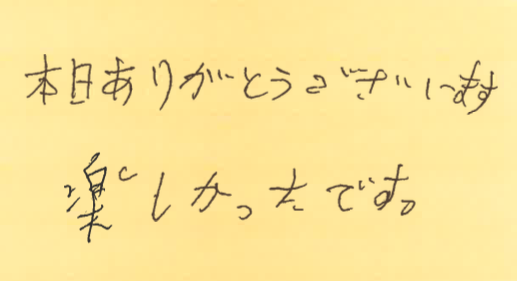 本日ありがとうございます
楽しかったです。